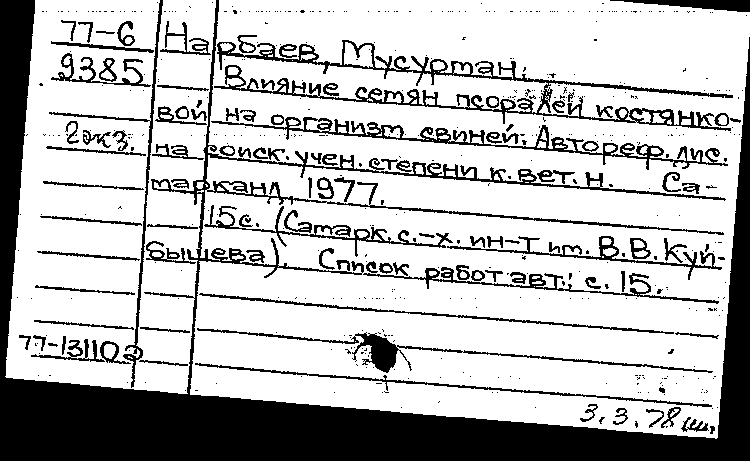 77-6 Нарбаев, Мусурман.
9385 Влияние семян псоралеи костянко-
вой на организм свиней. Автореф. дис.
2 экз. на соиск. учен. степени к. вет. н. Са-
марканд, 1977.
15 с. (Самарк. с.-х. ин-т им. В.В. Куй-
бышева). Список работ авт.: с. 15.
77-13110а
3.3.78